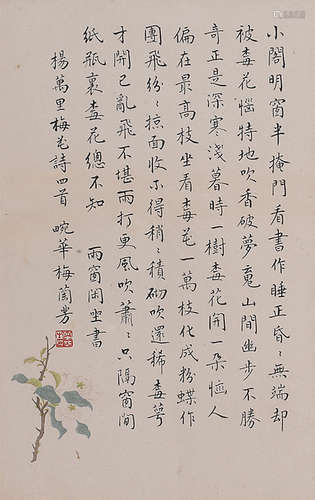 小閣明窗半掩門看書作睡正昏〻無端却
被䒵花惱特地吹香破夢䰟山間幽步不勝
奇正是深寒淺暮時一樹䒵花開一朵惱人
偏在最高枝坐看䒵花一萬枝化成粉蝶作
團飛紛〻掠面收不得稍〻積砌吹還稀䒵萼
才開已亂飛不堪雨打更風吹蕭〻只隔窗間
紙瓶裏䒵花總不知　雨窗閑坐書
揚萬里梅花詩四首　畹華梅蘭芳